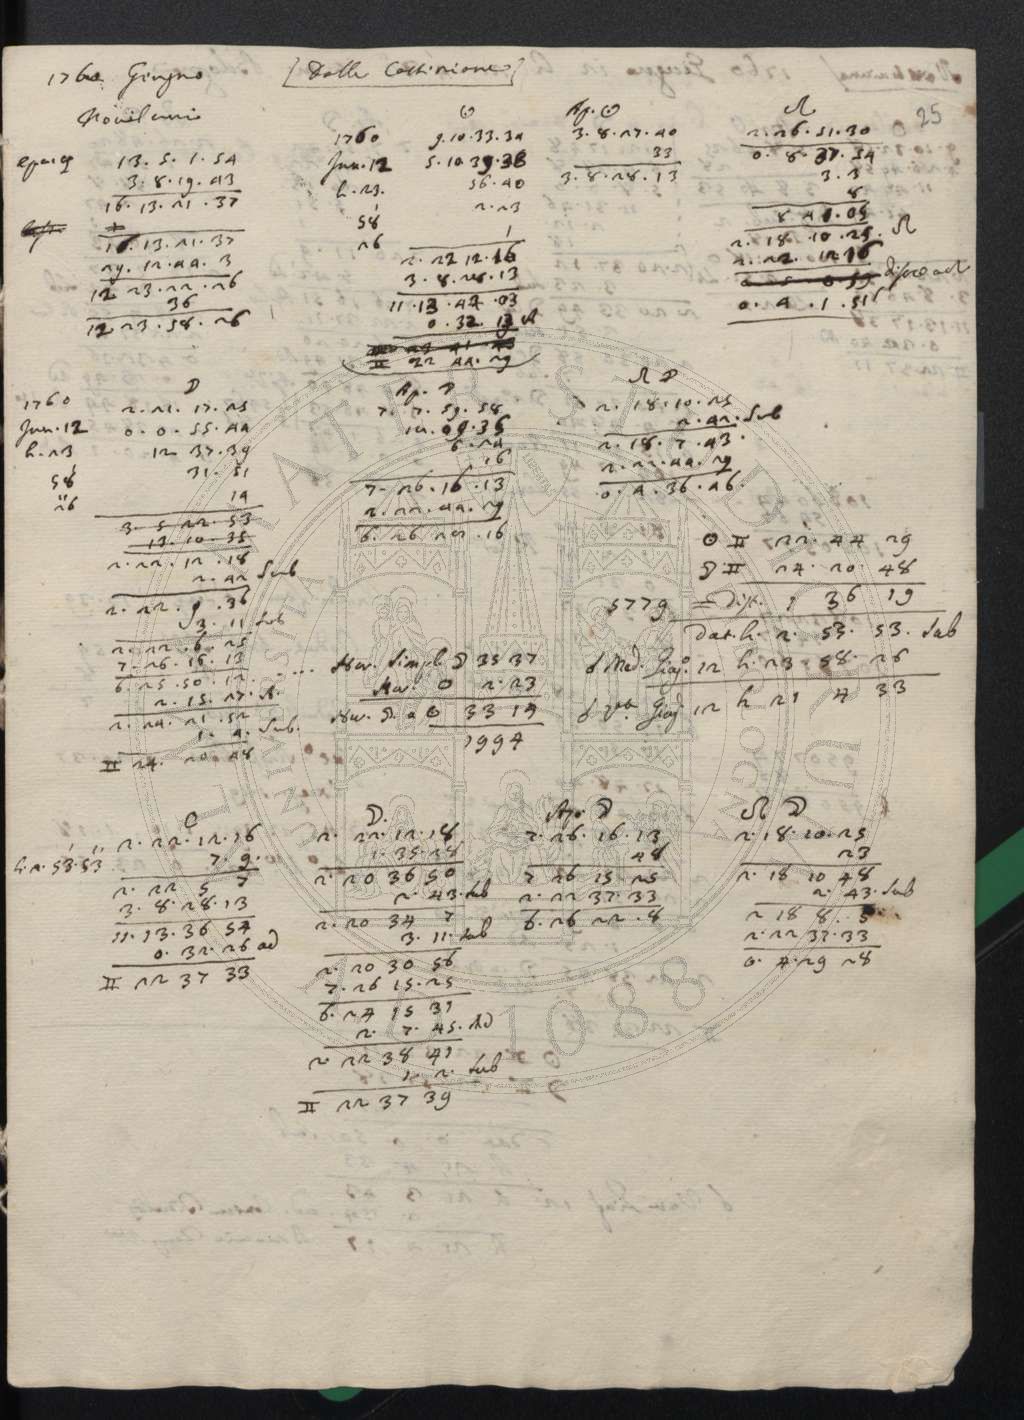 1760 Giugno [Dalle Cassiniane]
25
Novilunio
Epacta 13. 5. 1. 54
3. 8. 19. 43
16. 13. 21. 37
16. 13. 21. 37
29. 12. 44. 3
12 23. 22. 26
36
12 23. 58. 26
☉
1760 9. 10. 33. 34
Jun. 12 5. 10 39. 38
h. 23. 56. 40
58 2. 23
26 1
2. 22 12. 16
3. 8. 28. 13
11. 13. 44. 03
0. 32. 13 A
II 22 44. 29
Ap. ☉
3. 8. 27. 40
33
3. 8. 28. 13
☊
2. 26. 51. 30
0. 8. 37. 54
3. 3
8
8 41. 05
2. 18. 10. 25. ☊
2. 22. 12 16
0. 4. 1. 51
☽
1760 2. 21. 17. 25
Jun. 12 0. 0. 55. 44
h. 23 12 37. 39
58 31. 51
26 14
3. 5 22. 53
13. 10. 35
2. 22. 12. 18
2. 42 Sub
2. 22. 9. 36
3. 11 sub
2. 22. 6. 25
7. 26. 16. 13
6. 25. 50. 12
2. 15. 27. A.
2. 24. 21. 52
1. 4. Sub.
II 24. 20. 48
Ap. ☽
7. 7. 59. 58
18. 09. 35
6. 24
16
7. 26. 16. 13
2. 22. 44. 29
☊ ☽
2. 18. 10. 25
2. 42. Sub
2. 18. 7. 43.
2. 22. 44. 29
0. 4. 36. 46.
☉ II 22. 44 29
☽ II 24. 20. 48
5779 = Diff. 1 36 19
Dat. h. 2. 53. 53. Sub
☌ Med. Giug. 12 h. 23. 58. 26
☌ Vera Giug 12 h 21 4 33
Hor. Simpl. ☽ 35 37
Hor. ☉ 2. 23
Hor. ☽ a ☉ 33 14
1994
h. 2. 53. 53
2. 22. 12. 16
7. 9.
2. 22 5 7
3. 8. 28. 13
11. 13. 36 54
0. 32. 26 ad
II 22 37 33
☽.
2. 22. 12. 18
1. 35. 28
2. 20 36 50
2. 43. sub
2. 20 34 7
3. 11. sub
2. 20 30 56
7. 26 15. 25
6. 24 15 31
2. 7. 45. Ad
2. 22 38 41
1. 2. sub
II 22 37 39
Ap. ☽
7. 26. 16. 13
48
7 26 15. 25
2. 22 37. 33
☊ ☽
2. 18. 10. 25
23
2. 18 10 48
2. 43. sub
2 18 8. 5
2. 22 37. 33
0. 4. 29 28
ALMA MATER STUDIORUM
1088